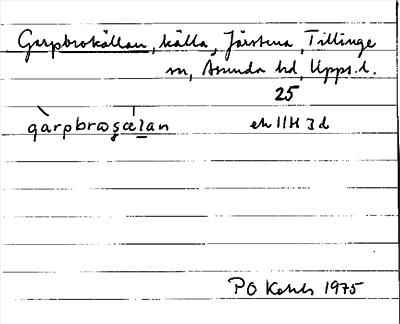 Garpbrokällan, källa, Järstena, Tillinge
sn, Asunda hd, Upps. l.
25
gàrpbrωşæ̍lan ek 11H 3d
PO 1975